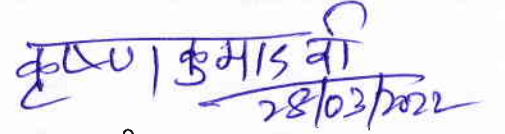 कृष्ण कुमार
28/03/2022